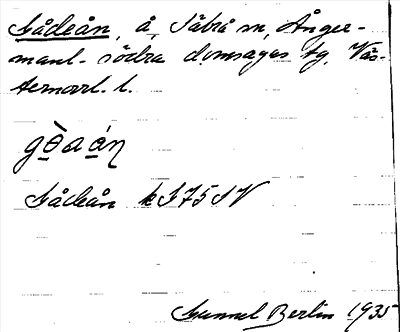 Gådeån, å, Säbrå sn, Ånger-
manl. södra domsagas tg, Väs-
ternorrl. l.
gə̀aán
Gådeån k S75SV
Gunnel Berlin 1935